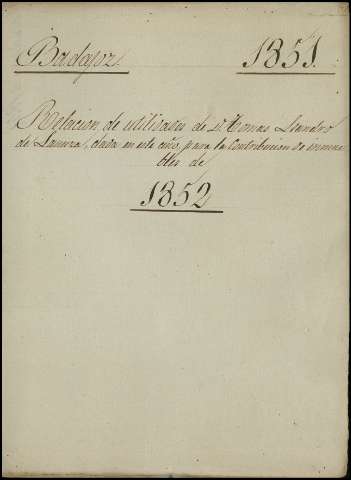 Badajoz. 1851.
Relacion de utilidades de Dn. Tomas Leandro
de Lanuza, dada en este año, para la Contribucion de inmue
bles de
1852